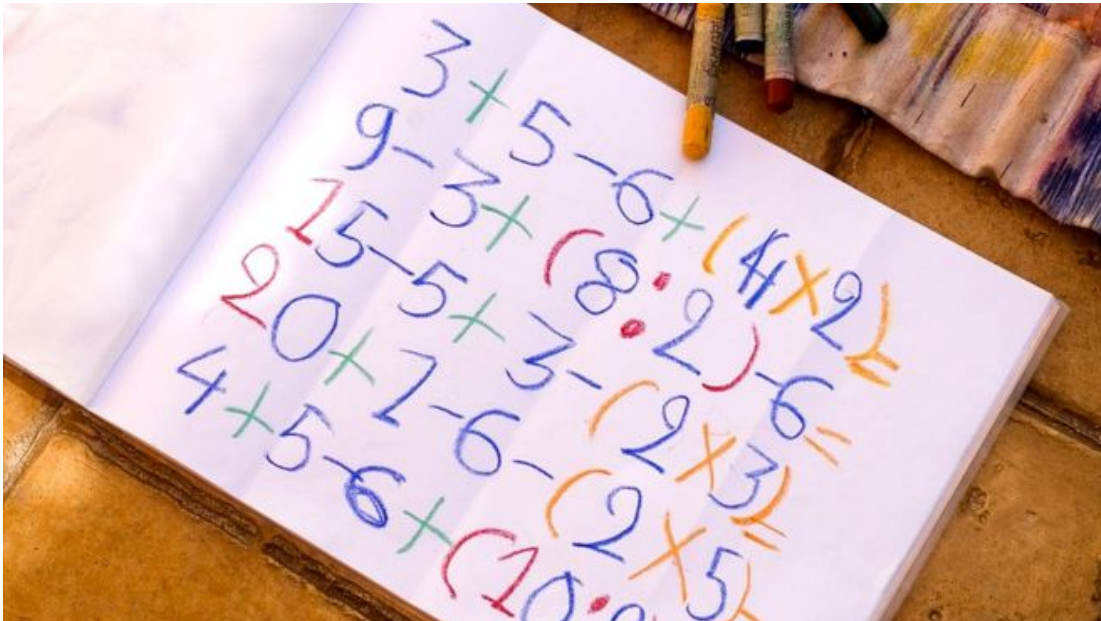 3+5-6+(4×2)=
9-3+(8:2)-6=
15-5+3-(2×3)=
20+1-6-(2×5)
4+5-6+(10: